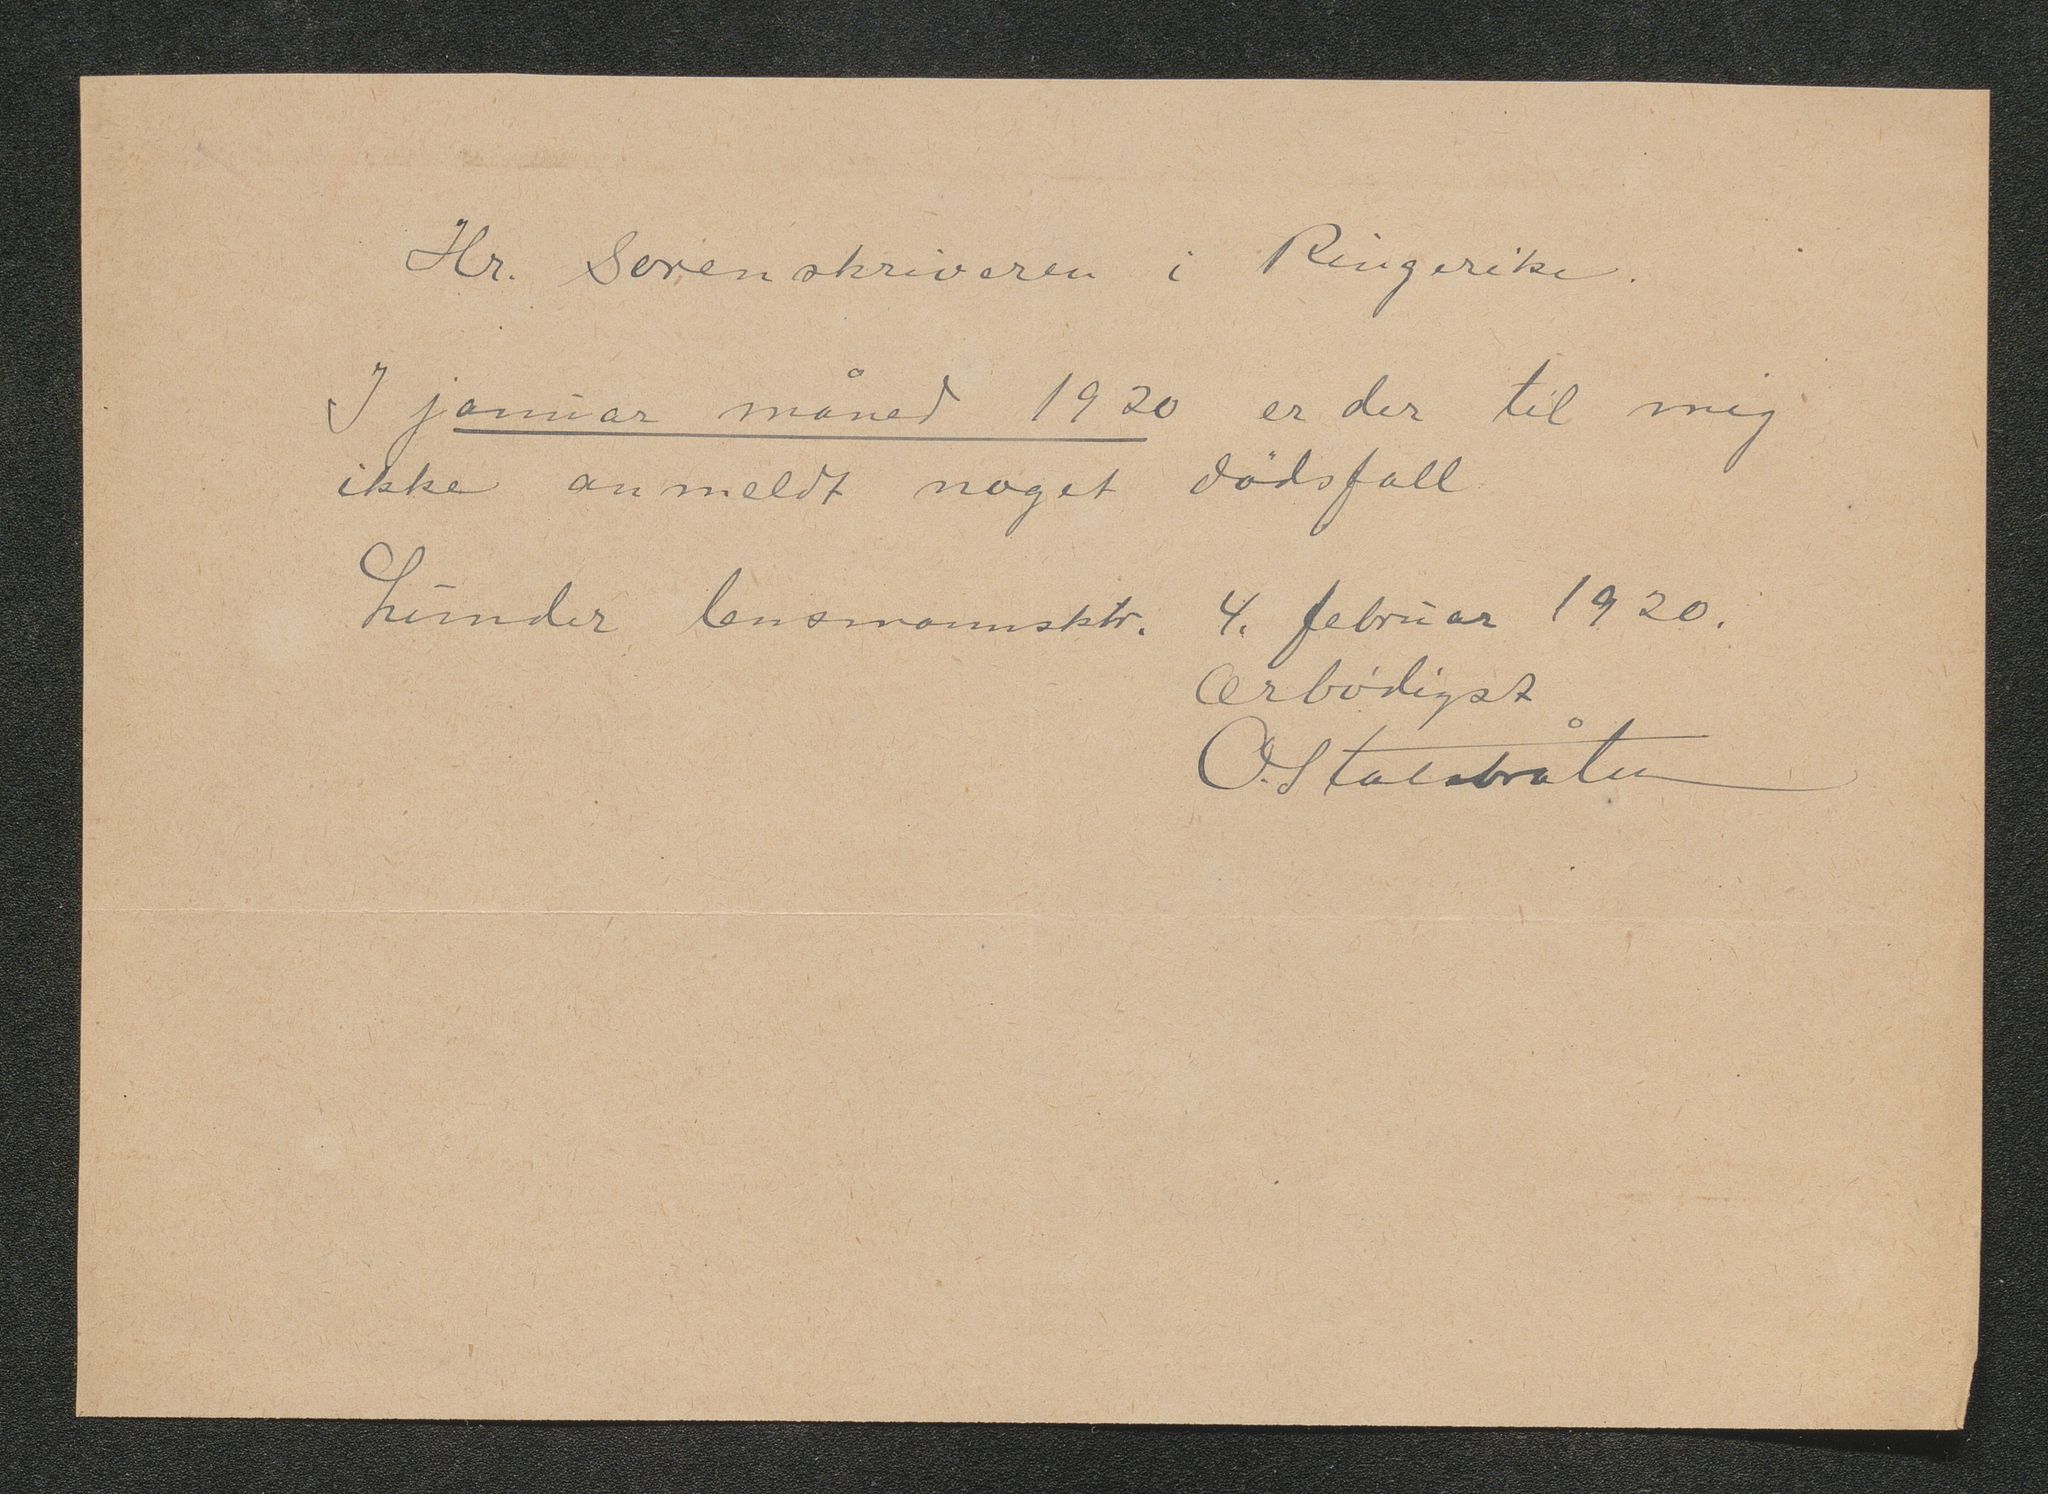 Hr. Sorenskriveren i Ringerike.
I januar måned 1920 er der til mig
ikke anmeldt noget dödsfall
Lunder lensmannsktr. 4. februar 1920.
Ærbödigst
O. Stalsbråten